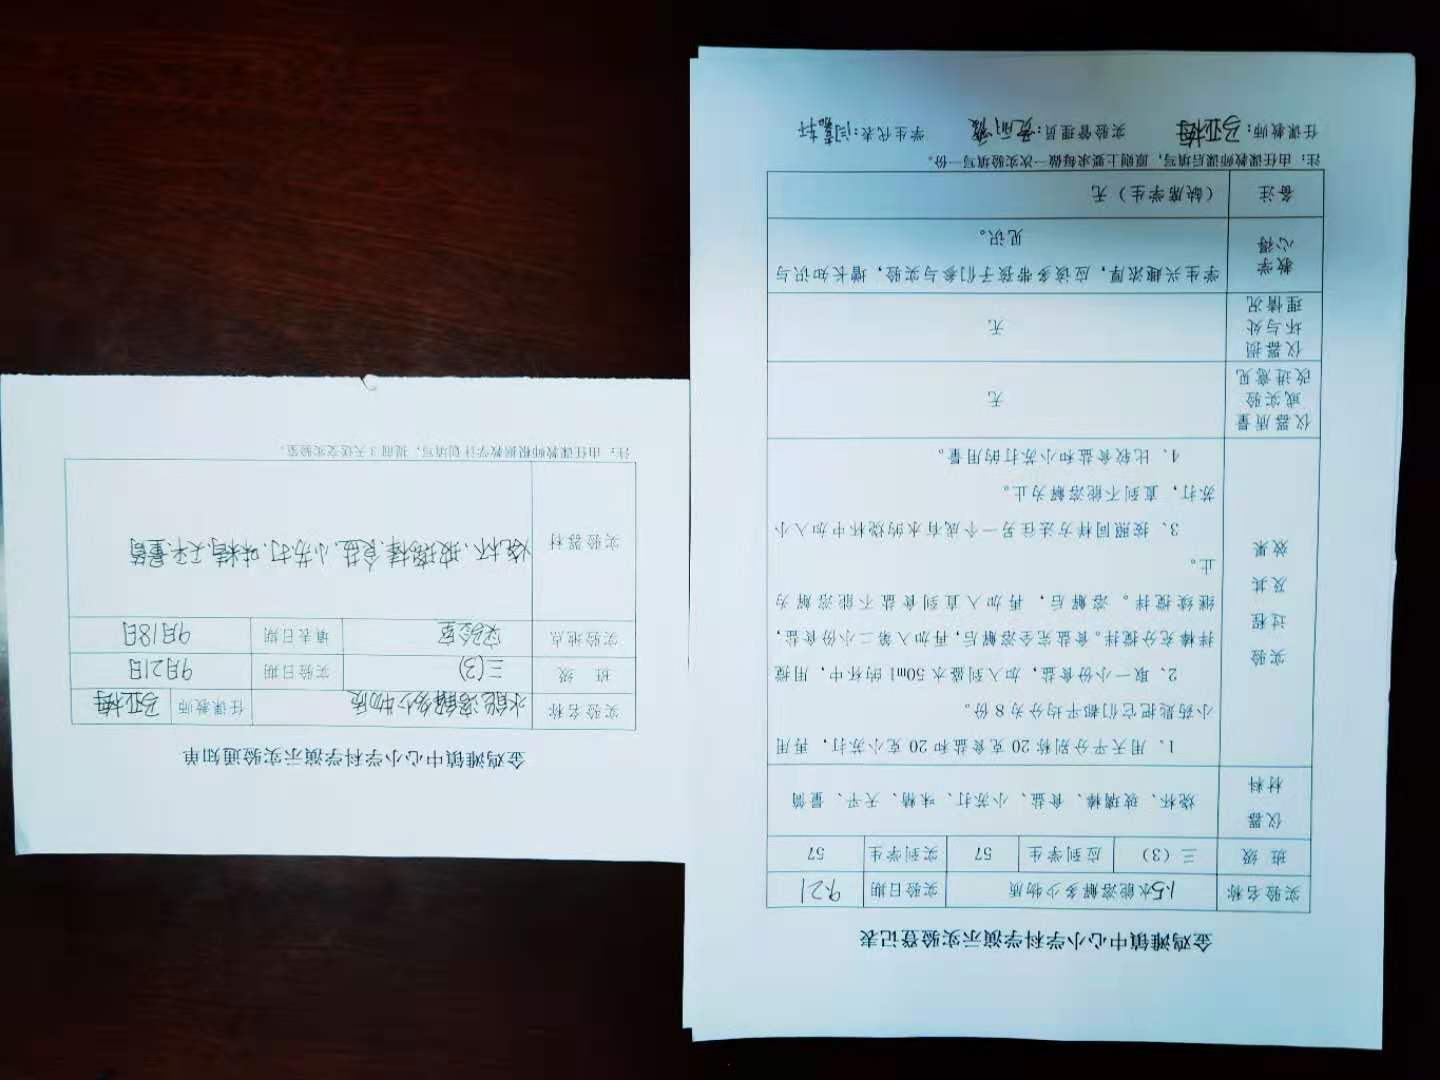 金鸡滩镇中心小学科学演示实验登记表
实验名称 1.5水能溶解多少物质 实验日期 9.21
班 级 三（3） 应到学生 57 实到学生 57
仪器
材料
烧杯、玻璃棒、食盐、小苏打、味精、天平、量筒
实验
过程
及其
效果
1、用天平分别称 20 克食盐和 20 克小苏打，再用
小药匙把它们都平均分为 8 份。
2、取一小份食盐，加入到盛水 50ml 的杯中，用搅
拌棒充分搅拌。食盐完全溶解后，再加入第二小份食盐，
继续搅拌。溶解后，再加入直到食盐不能溶解为
止。
3、按照同样方法往另一个成有水的烧杯中加入小
苏打，直到不能溶解为止。
4、比较食盐和小苏打的用量。
仪器质量
或实验
改进意见
无
仪器损
坏与处
理情况
无
教学
心得
学生兴趣浓厚，应该多带孩子们参与实验，增长知识与
见识。
备注 （缺席学生）无
注：由任课教师课后填写，原则上要求每做一次实验填写一份。
任课教师：马亚梅 实验管理员： 学生代表：闫嘉轩
金鸡滩镇中心小学科学演示实验通知单
实验名称 水能溶解多少物质 任课教师 马亚梅
班 级 三(3) 实验日期 9月21日
实验地点 实验室 填表日期 9月18日
实验器材 烧杯、玻璃棒、食盐、小苏打、味精、天平、量筒
注：由任课教师根据教学计划填写，提前 3 天送交实验室。